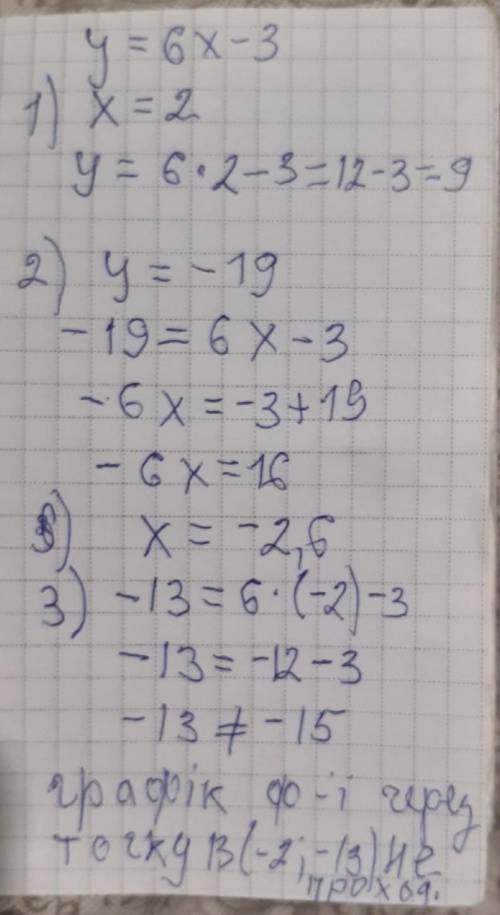 y = 6x - 3
1) x = 2
y = 6·2 - 3 = 12 - 3 = 9
2) y = -19
-19 = 6x - 3
-6x = -3 + 19
-6x = 16
x = -2,6
3) -13 = 6·(-2) - 3
-13 = -12 - 3
-13 ≠ -15
графік ф-ї через
точку B(-2; -13) не
проход.